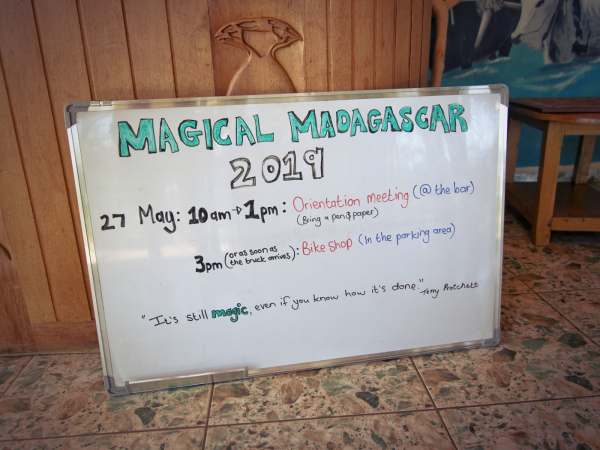 MAGICAL MADAGASCAR
2019
27 May: 10am → 1pm: Orientation meeting (@ the bar)
(Bring a pen & paper)
3pm (or as soon as the truck arrives): Bike Shop (In the parking area)
"It's still magic, even if you know how it's done." - Terry Pratchett